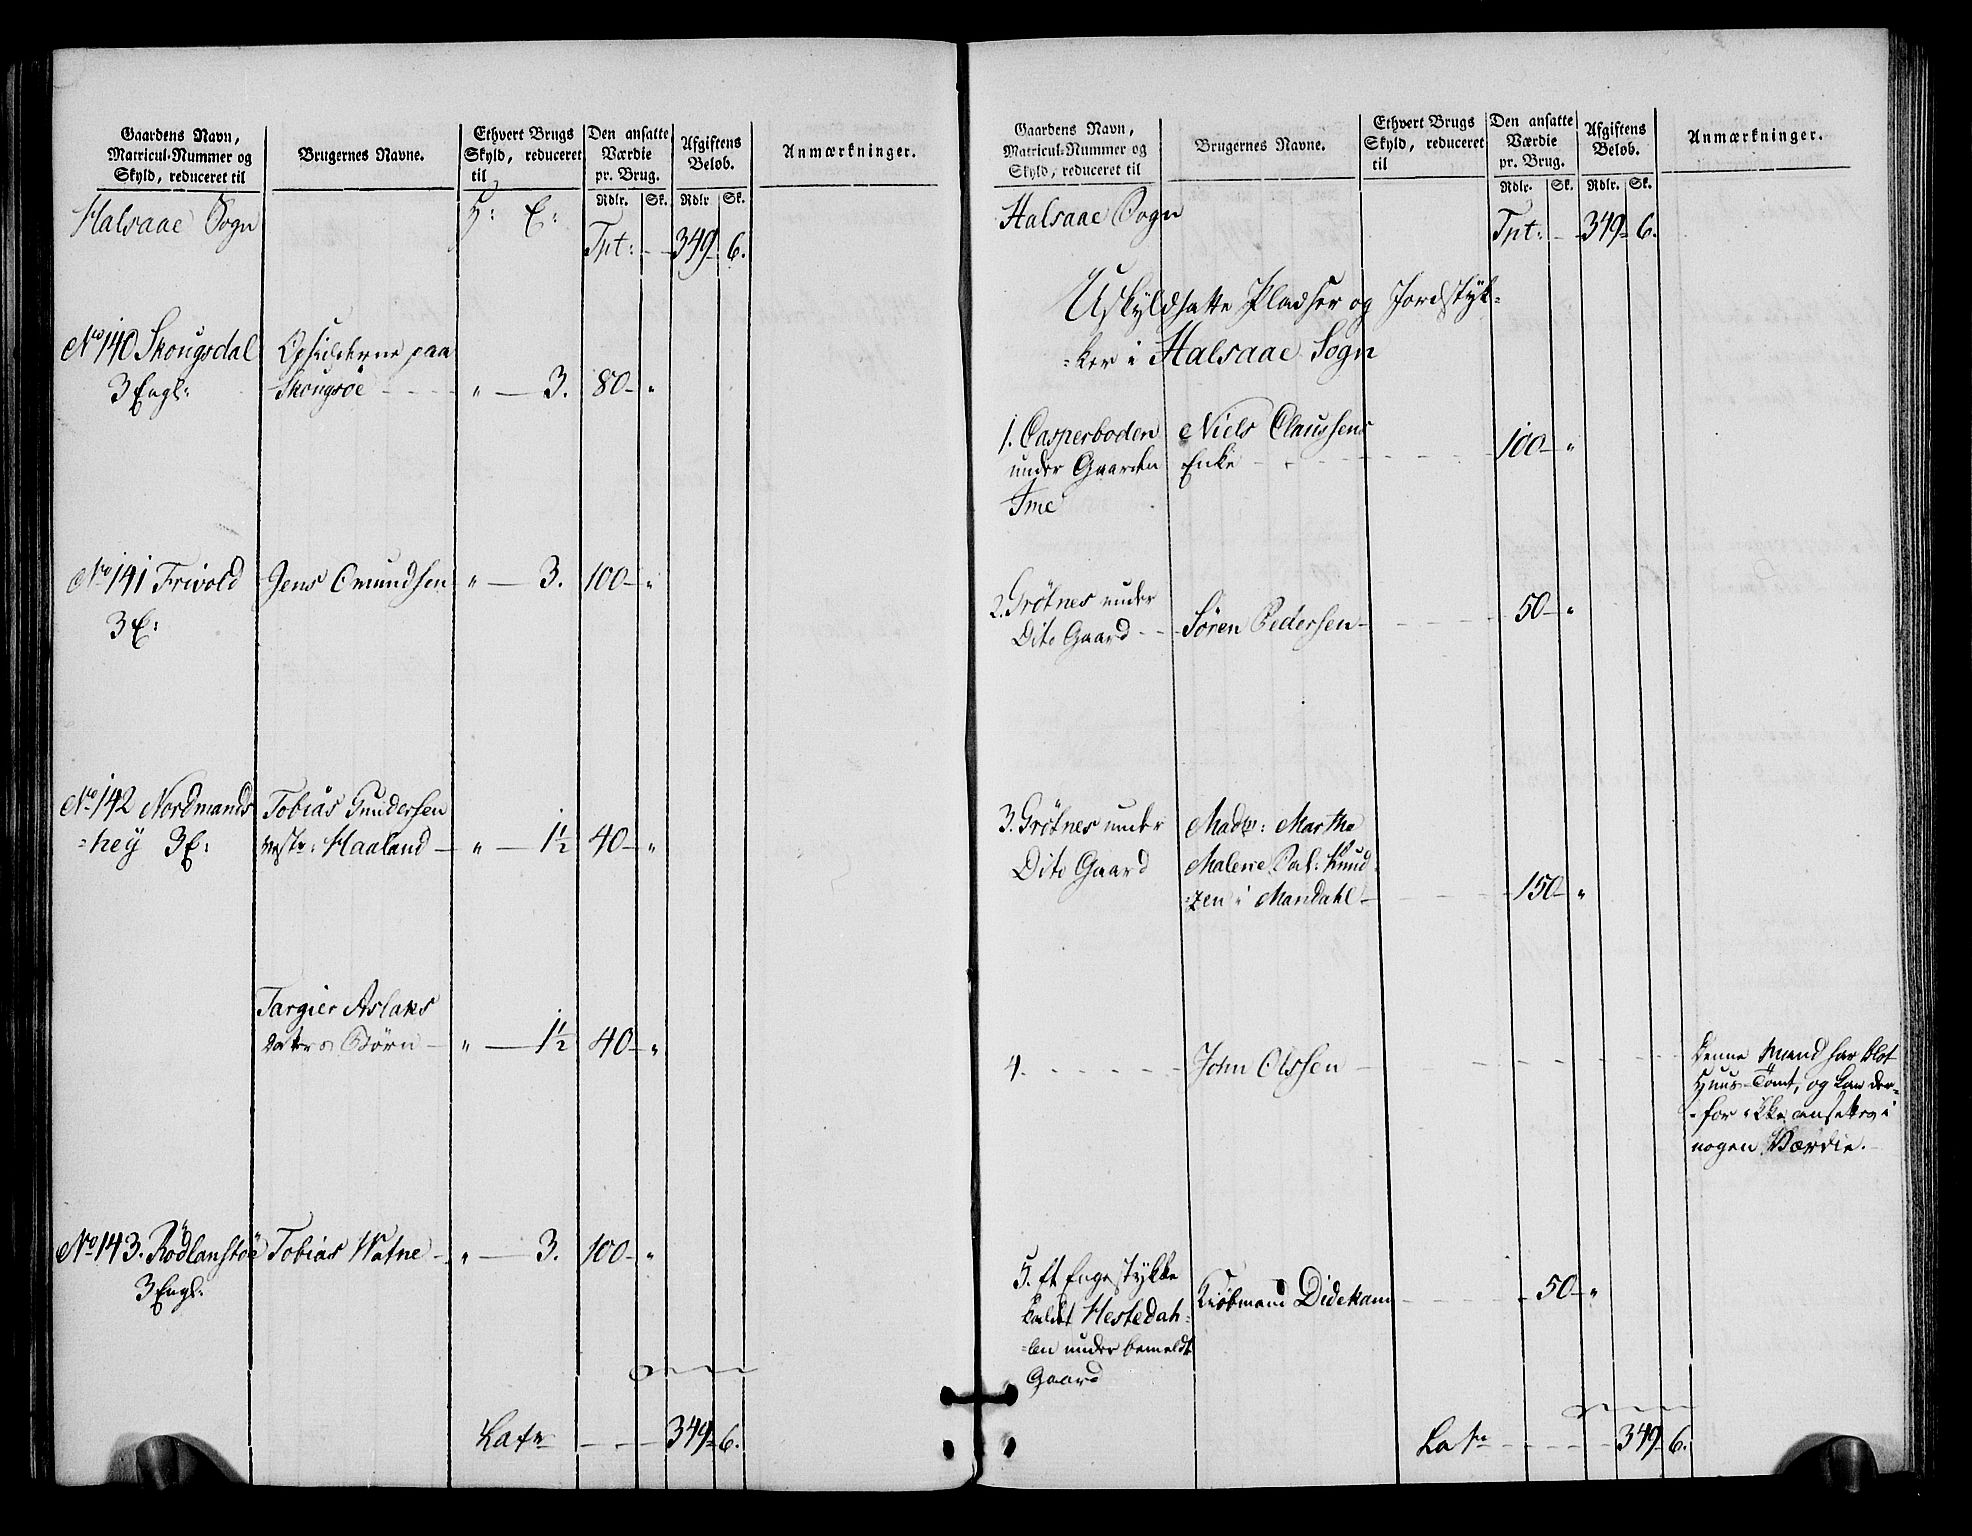 Gaardens Navn,
Matricul-Nummer og
Skyld, reduceret til
Brugernes Navne.
Ethvert Brugs
Skyld, reduceret
til
Den ansatte
Værdie
pr. Brug.
Rdlr. Sk.
Afgiftens
Beløb.
Rdlr Sk.
Anmærkninger.
Halsaae Sogn H: E:
Tpt: - - 349 - 6.
No 140 Skougsdal Opsidderne paa
3 Engl: Skougsøe - - - - " — 3. 80 - "
No 141 Frivold Jens Omundsen " — 3. 100 - "
3 E:
No 142 Nordmands Tobias Gundersen
=hey 3 E: Haaland - " — 1½ 40 - "
Targier Aslaks
Børn - " — 1½ 40 - "
No 143. Rødlanstøe Tobias Watne - " — 3. 100 - "
3 Engl.
Latr - - - 349 - 6.
Gaardens Navn,
Matricul-Nummer og
Skyld, reduceret til
Brugernes Navne.
Ethvert Brugs
Skyld, reduceret
til
Den ansatte
Værdie
pr. Brug.
Rdlr. Sk.
Afgiftens
Beløb.
Rdlr. Sk.
Anmærkninger.
Halsaae Sogn
Tpt: - - 349 - 6.
Uskyldsatte Pladser og Jordstyk=
=ker i Halsaae Sogn
1. Casperboden Niels Claussens
under Gaarden Enke - - - - - - - 100 - "
Ime
2. Grøtnes under
Dito Gaard - - - Søren Pedersen - - - - - 50 - "
3. Grøtnes under Madm: Marthe
Dito Gaard Malene Sal: Knud=
=zen i Mandahl - - - - 150 - "
4. - - - - - - John Olssen - - - - - - Denne Mand har blot
Huus-Tomt, og kan der=
=for ikke ansættes i
nogen Værdie.
5. Et Engestykke
kaldet Hestedah= Kiøbmand Didekam - - - - 50 - "
=len under bemeldte
Gaard
Latr - - - - - 349 - 6.